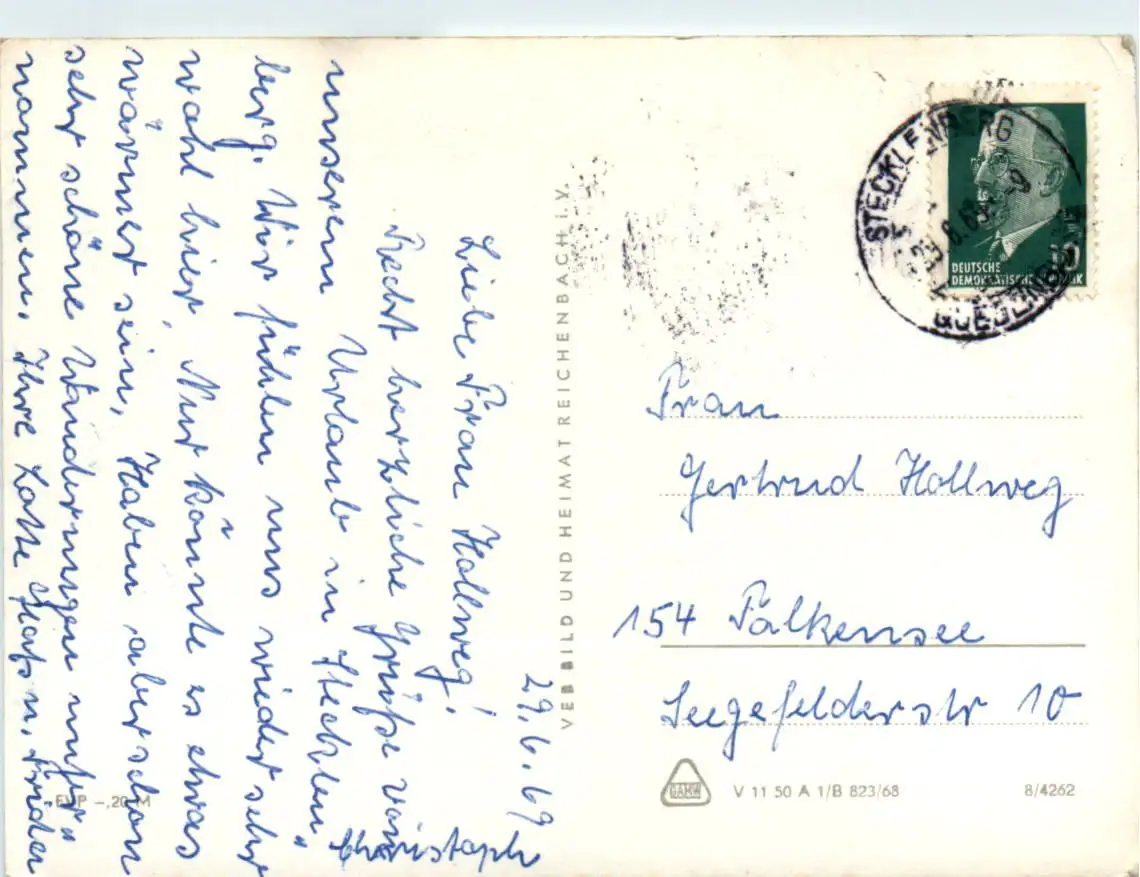 29.6.69
Liebe Frau Hollweg!
Recht herzliche Grüße von
unserem Urlaub in Stecklen"
berg. Wir fühlen uns wieder sehr
wohl hier. Nur könnte es etwas
wärmer sein. Haben aber schon
sehr schöne Wanderungen unter"
nommen. Ihre Lotte
Christoph
VEB BILD UND HEIMAT REICHENBACH I.V.
EVP -,20 M
STECKLENBERG
QUEDLINBURG
DEUTSCHE
DEMOKRATISCHE
Frau
Gertrud Hollweg
154 Falkensee
Seegefelderstr 10
V 11 50 A 1/B 823/68
8/4262